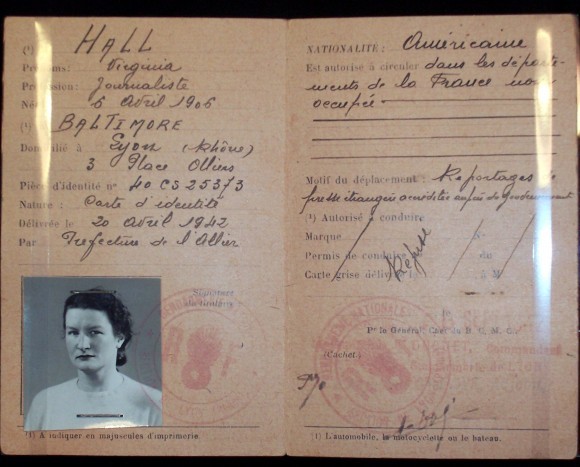 (¹) HALL
Prénoms: Virginia
Profession: Journaliste
Né 6 Avril 1906
(¹) BALTIMORE
Domicilié à Lyon (Rhône)
3 Place Olliers
Pièce d'identité n° 40 CS 25373
Nature: Carte d'identité
Délivrée le 20 Avril 1942
Par Prefecture de l'Allier
Signature
du titulaire
(1) A indiquer en majuscules d'imprimerie.
NATIONALITÉ: Américaine
Est autorisé à circuler dans les départe-
ments de la France non
occupée
Motif du déplacement: Reportages de
presse étrangère accréditée auprès du gouvernement
(¹) Autorisé à conduire
Marque N°
Permis de conduire du
Carte grise délivrée à M.
Refusé
Pr le Général, Chef du
(Cachet.)
(1) L'automobile, la motocyclette ou le bateau.